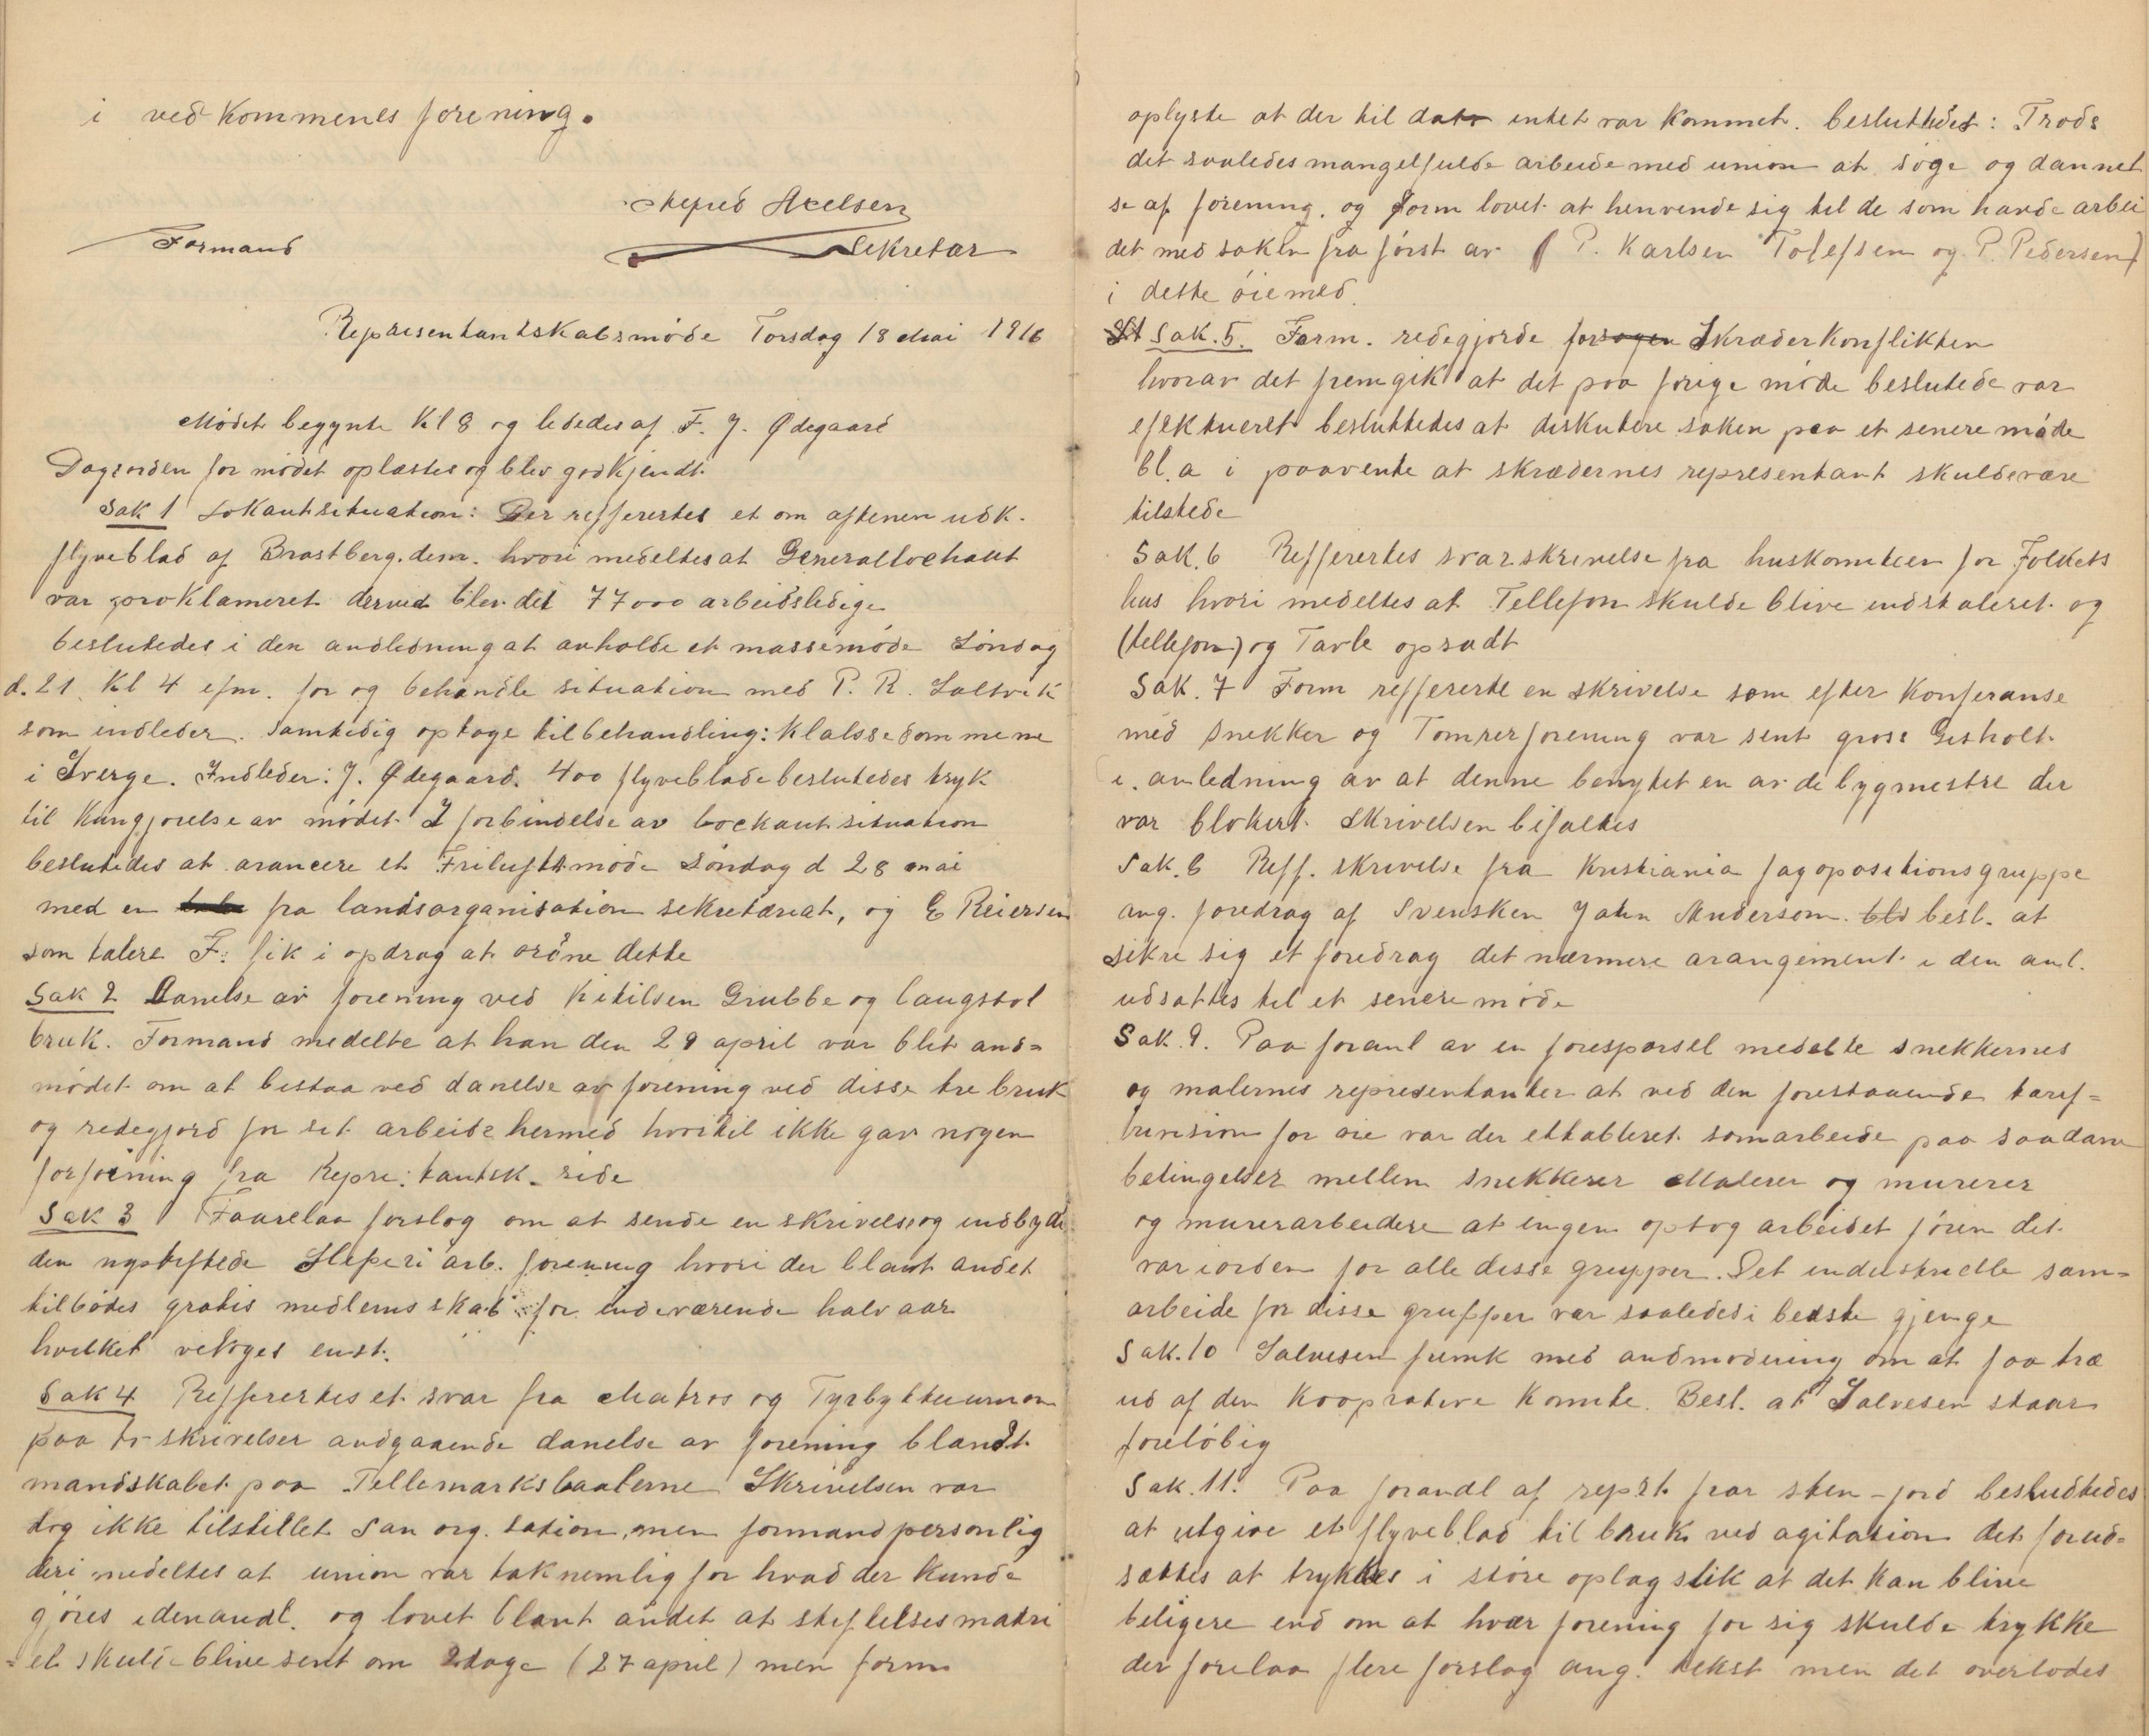 i vedkommenes forening.
Axelsen
Formand Sekretær
Repræsentantskabsmöde Torsdag 18 Mai 1916
Mödet begynte Kl 8 og lededes af F. J. Ødegaard
Dagsorden for mödet oplæstes og blev godkjendt.
Sak 1 Lokautsituation: Der refferertes et om aftenen udk.
flyveblad af Bratsberg.dem. hvori medeltes at Generallockaut
var proklameret derved blev det 77000 arbeidsledige
beslutedes i den andledning at avholde et massemöde Söndag
d. 21 Kl 4 efm. for og behandle situation med P. R. Saltvik
som indleder. samtidig optoge til behandling: Klalssedommene
i Sverge. Indleder: J. Ødegaard. 400 flyveblade beslutedes tryk
til kungjorelse av mödet I forbindelse av lockautsituation
beslutedes at arancere et Friluftsmöde Söndag d 28 mai
med en fra landsorganisation sekretæriat, og E Reiersen
som talere F: fik i opdrag at ordne dette
Sak 2 Danelse av forening ved Kitilsen Grubbe og Laugstol
bruk. Formand medelte at han den 29 april var blit and=
mödet om at bistaa ved danelse av forening ved disse tre bruk
og redegjord for sit arbeide hermed hvortil ikke gav nogen
forföining fra Repre: tantsk. side
Sak 3 Foorelaa forslag om at sende en skrivelse og indbyde
den nystiftede Sliperi arb. forening hvori der blant andet
tilbödes gratis medlemsskab for indeværende halv aar
hvilket vetoges enst.
Sak 4 Refferertes et svar fra Matros og Fyrbykterunion
paa to skrivelser andgaaende danelse av forening blandt
mandskabet paa Tellemarksbaaterne Skrivelsen var
dog ikke tilstillet San org. sation, men formand personlig
deri medeltes at union var taknemlig for hvad der kunde
göres i den andl. og lovet blant andet at stiftelsesmatri
=el skulde blive sent om 2 dage (27 april) men form
oplyste at der til dato intet var kommet. besluttedet: Trods
det saaledes mangelfulde arbeide med union at söge og dannet
se af forening. og form lovet at henvende sig til de som havde arbei
det med saken fra först av ( P. Karlsen Tolefsen og P. Pedersen)
i dette öiemed.
Sak. 5. Form. redegjorde Skræderkonflikten
hvorav det fremgik at det paa forige möde beslutede var
efektueret besluttedes at diskutere saken paa et senere möde
bl.a i paavente at skrædernes representant skulde være
tilstede
Sak. 6 Refferertes svarskrivelse fra huskomiteen for Folkets
hus hvori medeltes at Tellefon skulde blive indstaleret og
(tellefon) og Tavle opsadt
Sak. 7 Form reffererte en skrivelse som efter Konferanse
med Snekker og Tomrerforening var sent gross Gisholt
i anledning av at denne benyttet en av de bygmestre der
var blokert. Skrivelsen bifaltes
Sak. 8 Reff. skrivelse fra Kristiania fagopositionsgruppe
ang. foredrag af Svensken John Andersom. besl. at
sikre sig et foredrag det nærmere arangement i den anl.
udsattes til et senere möde
Sak. 9. Paa foranl av en foresporsel medelte snekkernes
og malernes representanter at ved den forestaaende tarif=
revision for öie var der ettableret samarbeide paa saadan
betingelser mellem snekkerer Malerer og murerer
og murerarbeidere at ingen optog arbeidet förin det
var iorden for alle disse grupper. Det industrielle sam=
arbeide for disse grupper var saaledes i bedste gjenge
Sak. 10 Salvesen fremk med andmodning om at faa træ
ud af den Kooprative Komite. Besl. at Salvesen staar
forelöbig
Sak. 11. Paa forandl af reprt. frar sten - jord besludtedes
at utgive et flyveblad til bruk ved agitation det forud=
sættes at trykkes i störe oplag slik at det kan blive
beligere end om at hvær forening for sig skulde trykke
der forelaa flere forslag ang. tekst men det overlodes